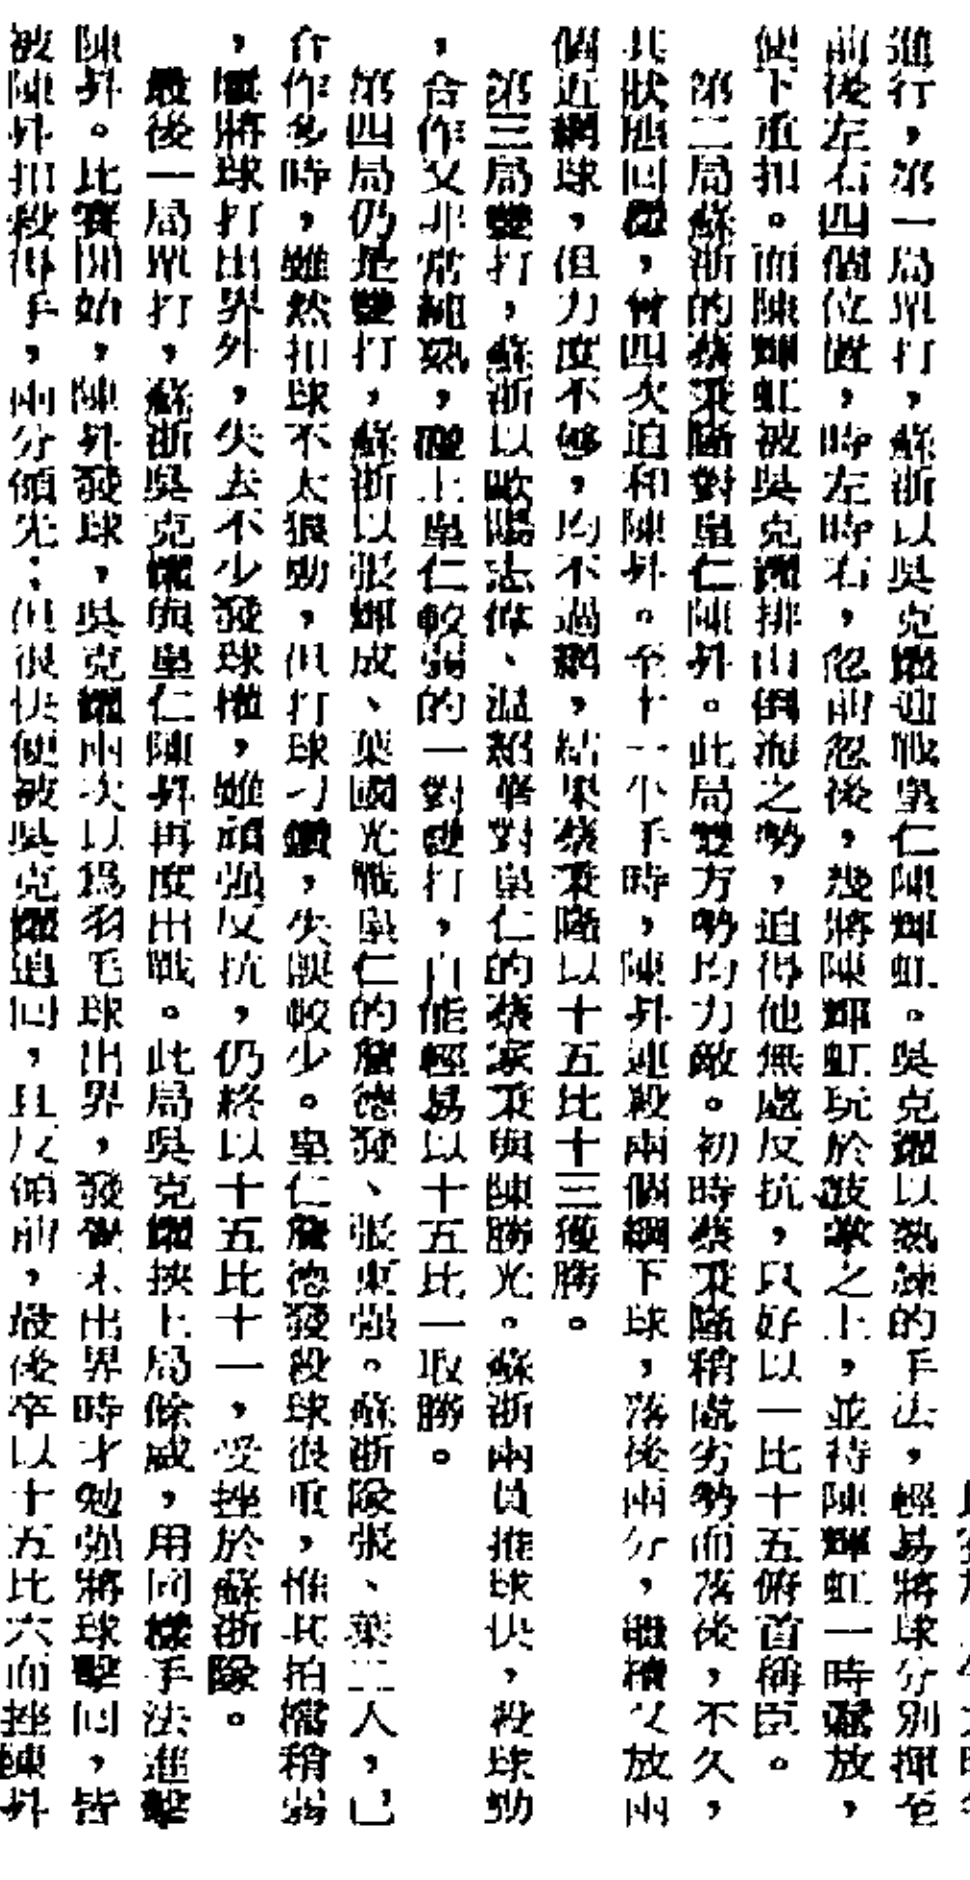 進行，第一局單打，蘇浙以吳克爛迎戰皇仁陳輝虹。吳克爛以熟諫的手法，輕易將球分別揮至
前後左右四個位置，時左時右，忽前忽後，幾將陳輝虹玩於鼓掌之上，並待陳輝虹一時鬆放，
便下重扣。而陳輝虹被吳克爛排山倒海之勢，迫得他無處反抗，只好以一比十五俯首稱臣。
第二局蘇浙的蔡秉隆對皇仁陳昇。此局雙方勢均力敵。初時蔡秉隆稍處劣勢而落後，不久，
其狀態回復，曾四次追和陳昇。至十一平手時，陳昇連殺兩個網下球，落後兩分，繼續又放兩
個近網球，但力度不够，均不過網，結果蔡秉隆以十五比十三獲勝。
第三局雙打，蘇浙以歐陽志偉、溫紹華對皇仁的蔡家秉與陳勝光。蘇浙兩員推球快，殺球勁
，合作又非常純熟，碰上皇仁較弱的一對雙打，自能輕易以十五比一取勝。
第四局仍是雙打，蘇浙以張輝成、葉國光戰皇仁的詹德發、張東强。蘇浙隊張、葉二人，已
合作多時，雖然扣球不太狠勁，但打球刁鑽，失誤較少。皇仁詹德發殺球很重，惟其拍檔稍弱
，屢將球打出界外，失去不少發球權，雖頑强反抗，仍終以十五比十一，受挫於蘇浙隊。
最後一局單打，蘇浙吳克爛與皇仁陳昇再度出戰。此局吳克爛挾上局餘威，用同樣手法進擊
陳昇。比賽開始，陳昇發球，吳克爛兩次以爲羽毛球出界，發覺未出界時才勉强將球擊回，皆
被陳昇扣殺得手，兩分領先；但很快便被吳克爛追回，且反領前，最後卒以十五比六而挫陳昇